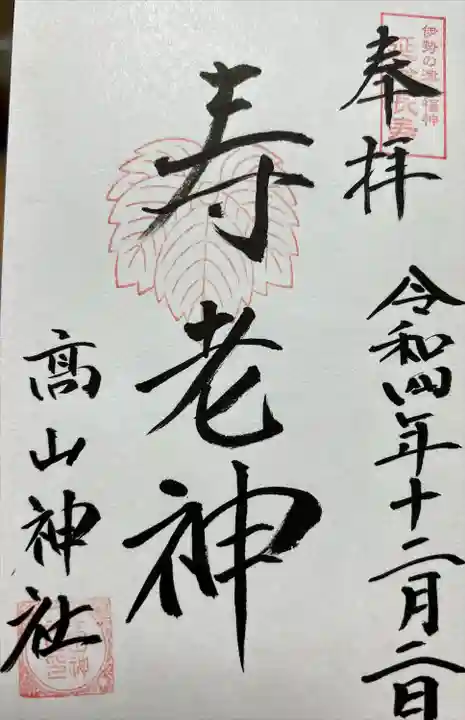 伊勢の津七福神
延命長寿
奉拝
令和四年十二月二日
寿老神
髙山神社